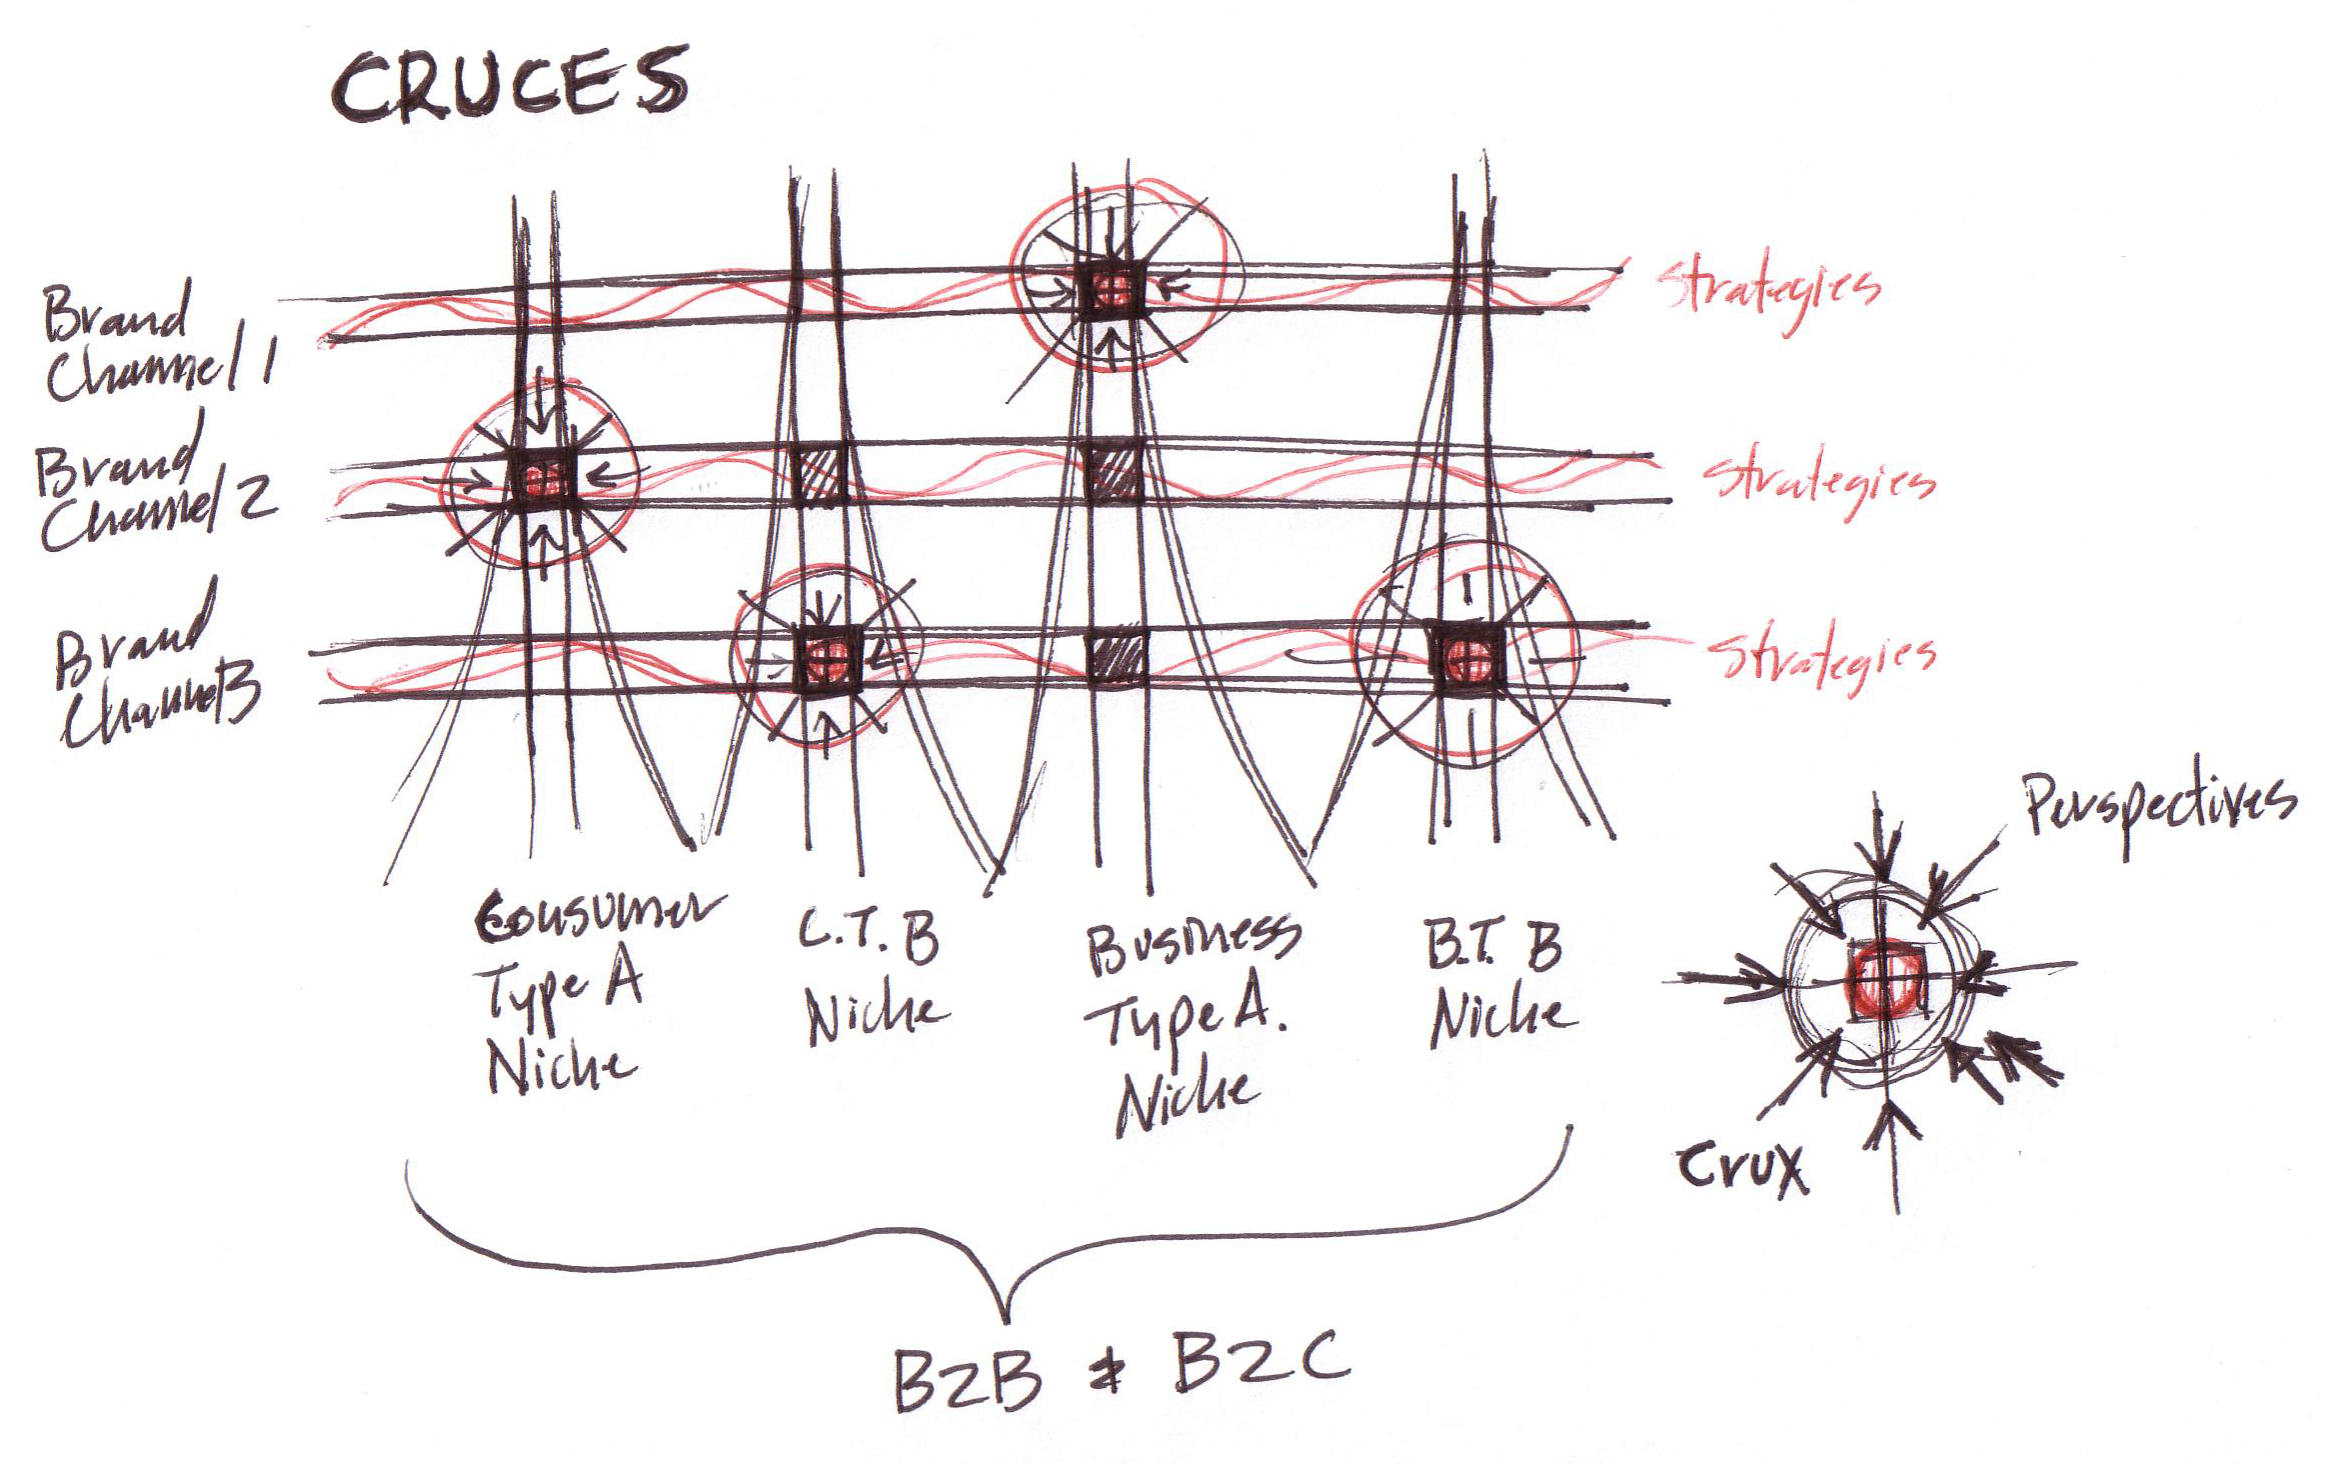 CRUCES
Brand
Channel 1
Strategies
Brand
Channel 2
Strategies
Brand
Channel 3
Strategies
Perspectives
Consumer
Type A
Niche
C.T. B
Niche
Business
Type A.
Niche
B.T. B
Niche
Crux
B2B & B2C